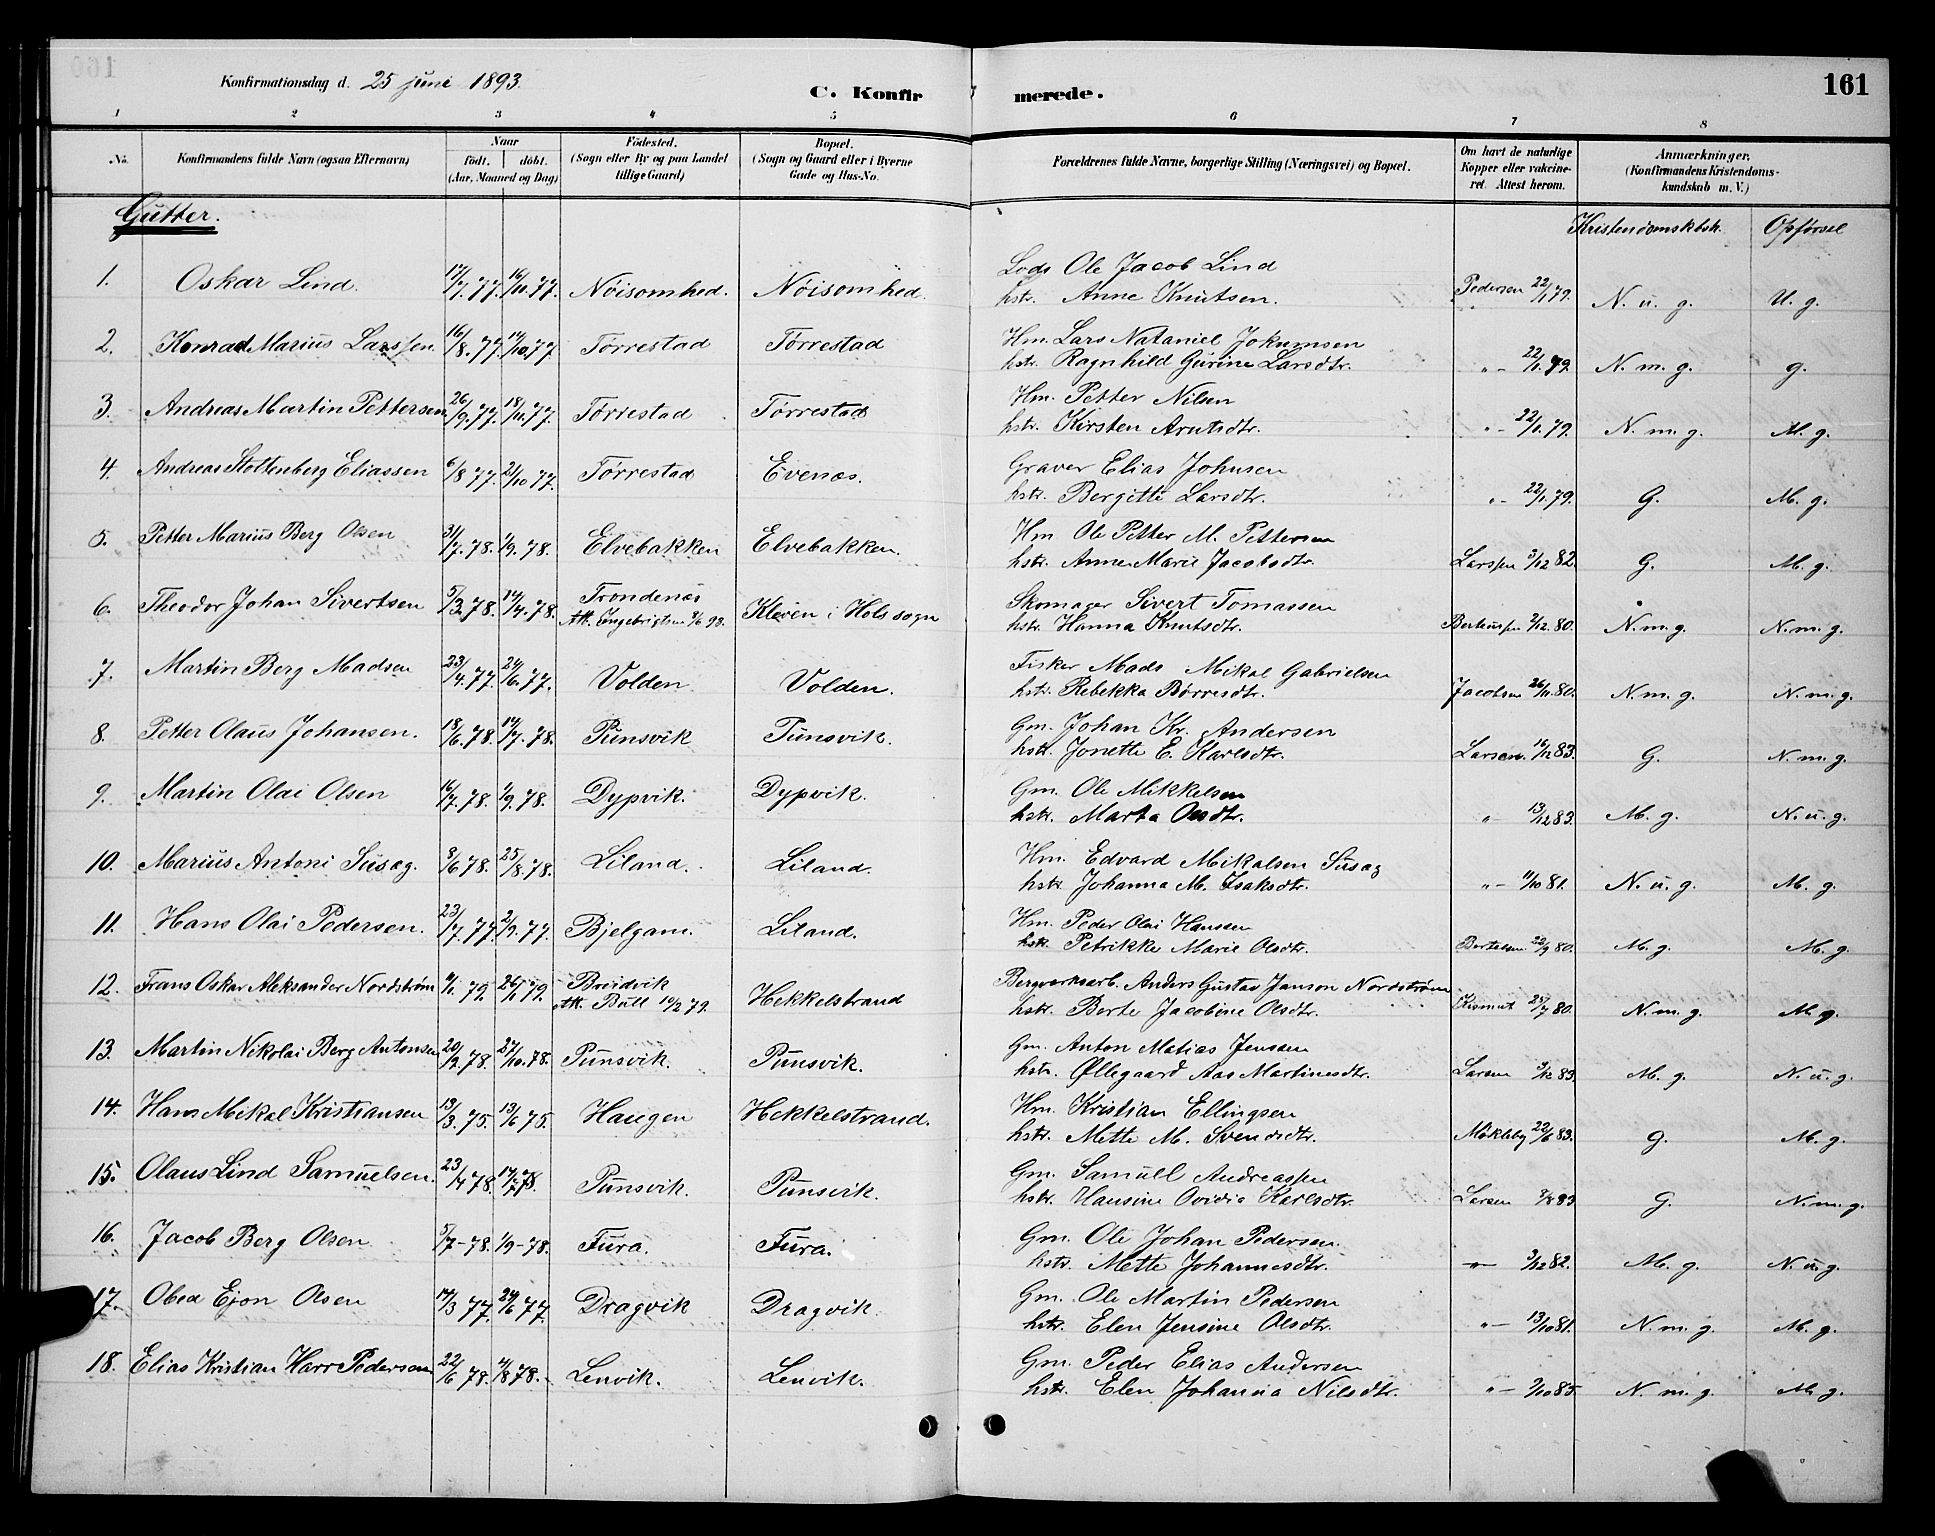 160
Konfirmationsdag d. 25 juni 1893.
C. Konfirmerede.
161
1 2 3 4 5 6 7 8
No.
Konfirmandens fulde Navn (ogsaa Efternavn)
Naar
født. døbt.
(Aar, Maaned og Dag)
Fødested.
(Sogn eller By og paa Landet
tillige Gaard)
Bopæl.
(Sogn og Gaard eller i Byerne
Gade og Hus-No.
Forældrenes fulde Navne, borgerlige Stilling (Næringsvei) og Bopæl.
Om havt de naturlige
Kopper eller vakcine-
ret. Attest herom.
Anmærkninger.
(Konfirmandens Kristendoms-
kundskab m. V.)
Gutter.
Kristendomskbsk. Opførsel
1. Oskar Lind. 17/7.77. 16/10.77. Nöisomhed. Nöisomhed. Lods Ole Jacob Lind
hstr. Anne Knutsen. Pedersen 22/1 79. N. u. g. U. g.
2. Konrad Marius Larssen 16/8.77. 14/10.77 Tørrestad Tørrestad Hm. Lars Nataniel Jokumsen
hstr. Ragnhild Gurine Larsdtr. "- 22/1.79. N. m. g. g.
3. Andreas Martin Pettersen 26/9.77. 18/10.77. Tørrestad Tørrestad Hm. Petter Nilsen
hstr. Kirsten Arntsdtr. "- 22/1.79. N. m. g. M. g.
4. Andreas Stoltenberg Eliassen 6/8 77. 21/10 77. Tørrestad Evenæs. Graver Elias Johnsen
hstr. Bergitte Larsdtr. "- 22/1.79. G. M. g.
5. Petter Marius Berg Olsen 31/7.78. 1/9.78. Elvebakken Elvebakken. Hm Ole Petter M. Pettersen
hstr. Anne Marie Jacobsdtr. Larssen 3/12 82. G. M. g.
6. Theodor Johan Sivertsen 5/3.78. 14/4.78. Trondenæs
Att. Engebrigtsen 9/6 93. Kleven i Hols sogn Skomager Sivert Tomassen
hstr. Hanna Knutsdtr. 2/12.80. N. m. g. N. m. g.
7. Martin Berg Madsen 23/4.77. 24/6.77. Volden Volden. Fisker Mads Mikal Gabrielsen
hstr. Rebekka Børresdtr. Jacobsen 26/11.80. N. m. g. N. m. g.
8. Petter Olaus Johansen. 18/6.78. 14/7.78. Punsvik Punsvik. Gm. Johan Kr. Andersen
hstr. Jonette E. Karlsdtr. Larsen. 16/12 83. G. N. m. g.
9. Martin Olai Olsen 16/7.78. 1/9.78. Dypvik. Dypvik. Gm. Ole Mikkelsen
hstr. Marta Olsdtr. " 13/12 83. M. g. N. u. g.
10. Marius Antoni Susæg. 8/6 78. 25/8.78. Liland. Liland. Hm. Edvard Mikalsen Susæg
hstr. Johanna M. Isaksdtr. "- 11/10 81. N. u. g. M. g.
11. Hans Olai Pedersen. 23/7.77. 2/9.77. Bjelgam. Liland. Hm. Peder Olai Hansen
hstr. Petrikke Marie Olsdtr. Bertelsen 22/9 80. M. g. M. g.
12. Frans Oskar Aleksander Nordstrøm 11/1. 79. 26/1 79. Breidvik
Att. Bull 10/2 79. Hekkelstrand Bergverksarb. Anders Gustav Janson Nordstrøm
hstr. Berte Jacobine Olsdtr. 25/7 80. N. m. g. M. g.
13. Martin Nikolai Berg Antonsen 20/9.78. 27/10.78. Punsvik. Punsvik. Gm. Anton Matias Jenssen
hstr. Øllegaard Aas Martinesdtr. Larsen 3/12 83. M. g. N. u. g.
14. Hans Mikal Kristiansen 13/3.75. 13/6 75. Haugen Hekkelstrand. Hm. Kristian Ellingsen
hstr. Mette M. Svendsdtr. Mökleby 22/6 83. g. M. g.
15. Olaus Lind Samuelsen. 23/4 78. 14/7 78. Punsvik. Punsvik. Gm. Samuel Andreassen
hstr. Hansine Ovidia Karlsdtr. Larsen 83 G. N. m. g.
16. Jacob Berg Olsen 5/7-78. 1/9-78. Fura. Fura. Gm. Ole Johan Pedersen.
hstr. Mette Johannesdtr. -"- 3/12 82. M. g. N. u. g.
17. Obed Ejon Olsen 14/3 77. 24/6 77. Dragvik Dragvik Gm. Ole Martin Pedersen
hstr. Elen Jensine Olsdtr. "- 13/10 81. N. m. g. M. g.
18. Elias Kristian Harr Pedersen 22/6 78. 11/8 78. Lenvik. Lenvik. Gm. Peder Elias Andersen
hstr. Elen Johanna Nilsdtr. "- 2/10 85. N. m. g. M. g.